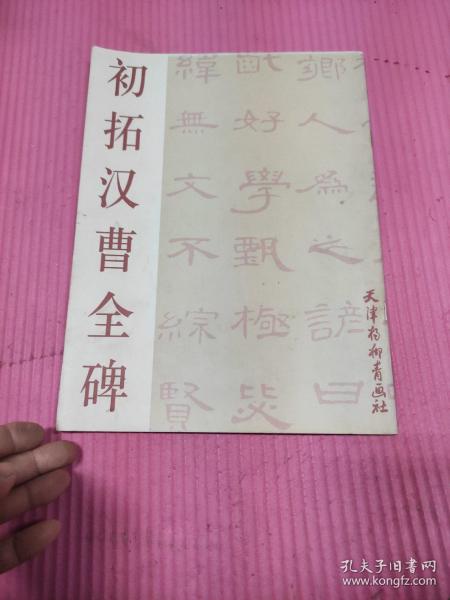 初拓汉曹全碑
乡人为之谚曰
猷好學甄極毖
緯無文不綜賢
天津杨柳青画社
孔夫子旧书网
www.kongfz.com